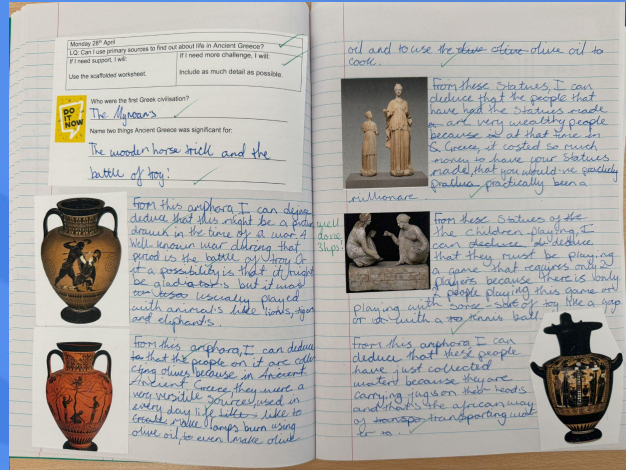 Monday 28th April
LQ: Can I use primary sources to find out about life in Ancient Greece?
If I need support, I will:
If I need more challenge, I will:
Use the scaffolded worksheet.
Include as much detail as possible.
DO IT NOW
Who were the first Greek civilisation?
The Mynoans
Name two things Ancient Greece was significant for:
The wooden horse trick and the
battle of troy!
From this amphora, I can
deduce that this might be a picture
drawn in the time of a war. A
well-known war during that
period is the battle of troy Or
it a possibility is that it might
be but it was
usually played
with animals like lions,
and elephants.
From this amphora, I can deduce
that the people on it are
olives, because in Ancient
Ancient Greece, they were a
very versitile sources, used in
every day life like to
make lamps burn using
olive oil, to even make olive
oil and to use the olive oil to
cook.
From these statues, I can
deduce that the people that
have had the statues made
are very wealthy people
because at that time in
Greece, it costed so much
money to have your statues
made, that you would've
practically been a
millionare.
well
done
3hps!
From these statues of the
the children playing, I
can deduce
that they must be playing
a game that requires only 2
players because there is only
2 people playing this game or
playing with some sort of toy like a
or with a tennis ball.
From this amphora I can
deduce that these people
have just collected
water because they are
carrying jugs on their heads
and that's the african way
of transporting wat-
er to